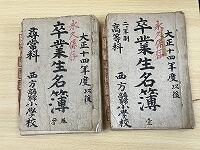 大正十四年度以後
永久保存
卒業生名簿
尋常科
西方尋常小学校
大正十四年度以後
永久保存
卒業生名簿
二年制
高等科
西方尋小学校